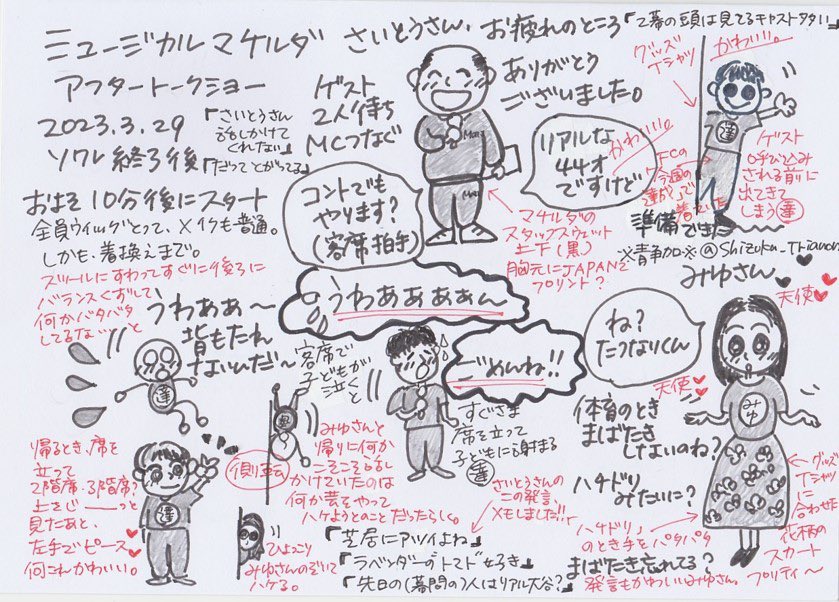 ミュージカル マケルダ
アフタートークショー
2023.3.29
ソワレ終了後
「さいとうさん
話しかけて
くれない」
「だってとがってる」
さいとうさん、お疲れのところ
ゲスト
2人待ち
MCつなぐ
ありがとう
ございました。
コントでも
やります?
(客席拍手)
リアルな
44才
ですけど
かわいい。
マケルダの
スタッフスウェット
上下(黒)
胸元にJAPANと
プリント?
グッズ
Tシャツ
かわいい。
達
ゲスト
呼び込み
される前に
出てきて
しまう 達
準備できた
およそ10分後にスタート
全員ウィッグとって、メイクも普通。
しかも、着換えまで。
スツールにすわってすぐに後ろに
バランスくずして
何かバタバタ
してるな〜と
うわああ〜
背もたれ
ないんだ〜
達
うわああああん
客席で
子どもが
泣くと
ごめんね!!
すぐさま
席を立って
子どもに謝まる
達
みゆさん
天使
ね?
たつなりくん
天使
みゆ
体育のとき
まばたき
しないのね?
ハチドリ
みたいに?
ハチドリ」
のとき手をパタパタ
まばたき忘れてる?
発言もかわいいみゆさん。
グッズ
Tシャツ
に
合わせた
花柄の
スカート
プリティ〜
帰るとき、席を
立って
2階席・3階席?
上をじーーーっと
見たあと、
左手でピース
何これかわいい。
達
側転
みゆさんと
帰りに何か
こそこそ話し
かけていたのは
何か芸をやって
ハケようとのことだったらしく。
ひょっこり
みゆさんのぞいて
ハケる。
さいとうさんの
この発言、
メモしました!!
「芝居にアツイよね」
「ラベンダーのトマト好き」
「先日の(幕間の)人はリアル大谷?」